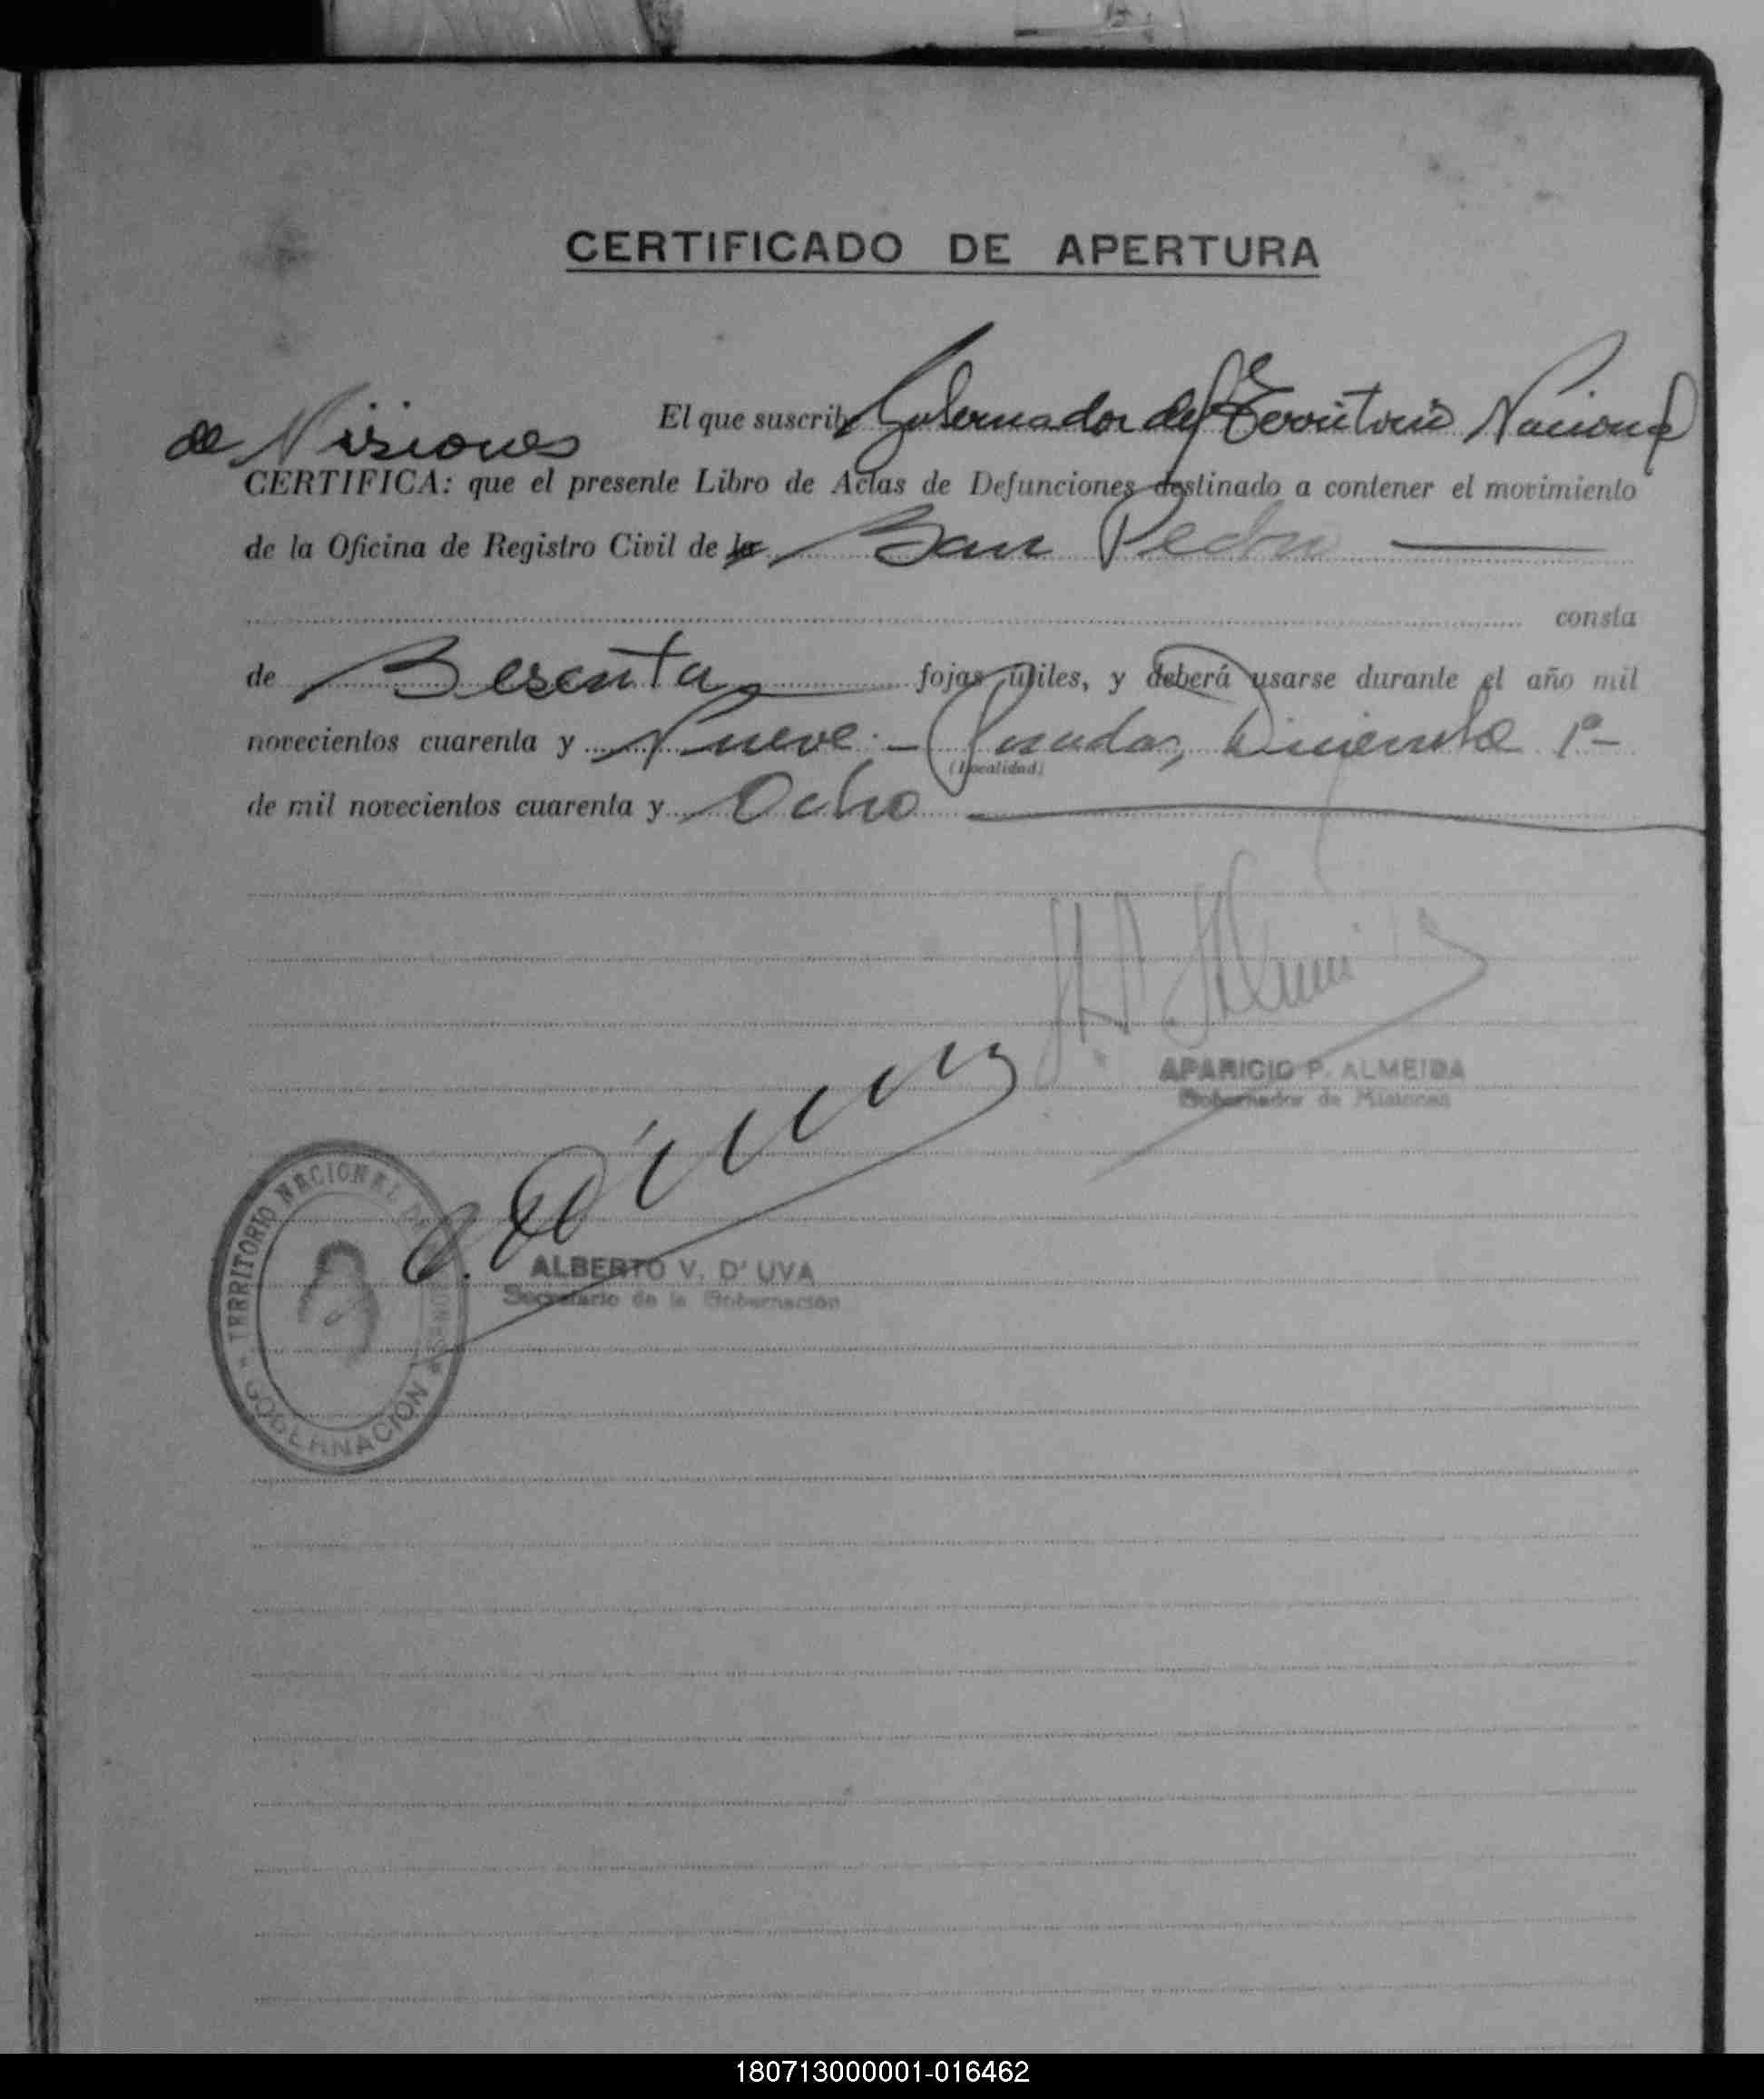 CERTIFICADO DE APERTURA
El que suscribe Gobernador del Territorio Nacional
de Misiones
CERTIFICA: que el presente Libro de Actas de Defunciones destinado a contener el movimiento
de la Oficina de Registro Civil de la San Pedro
consta
de Sesenta fojas útiles, y deberá usarse durante el año mil
novecientos cuarenta y Nueve.- Posadas, Diciembre 1º-
(Localidad)
de mil novecientos cuarenta y Ocho
APARICIO P. ALMEIDA
Gobernador de Misiones
TERRITORIO NACIONAL DE MISIONES
GOBERNACIÓN
ALBERTO V. D'UVA
Secretario de la Gobernación
180713000001-016462